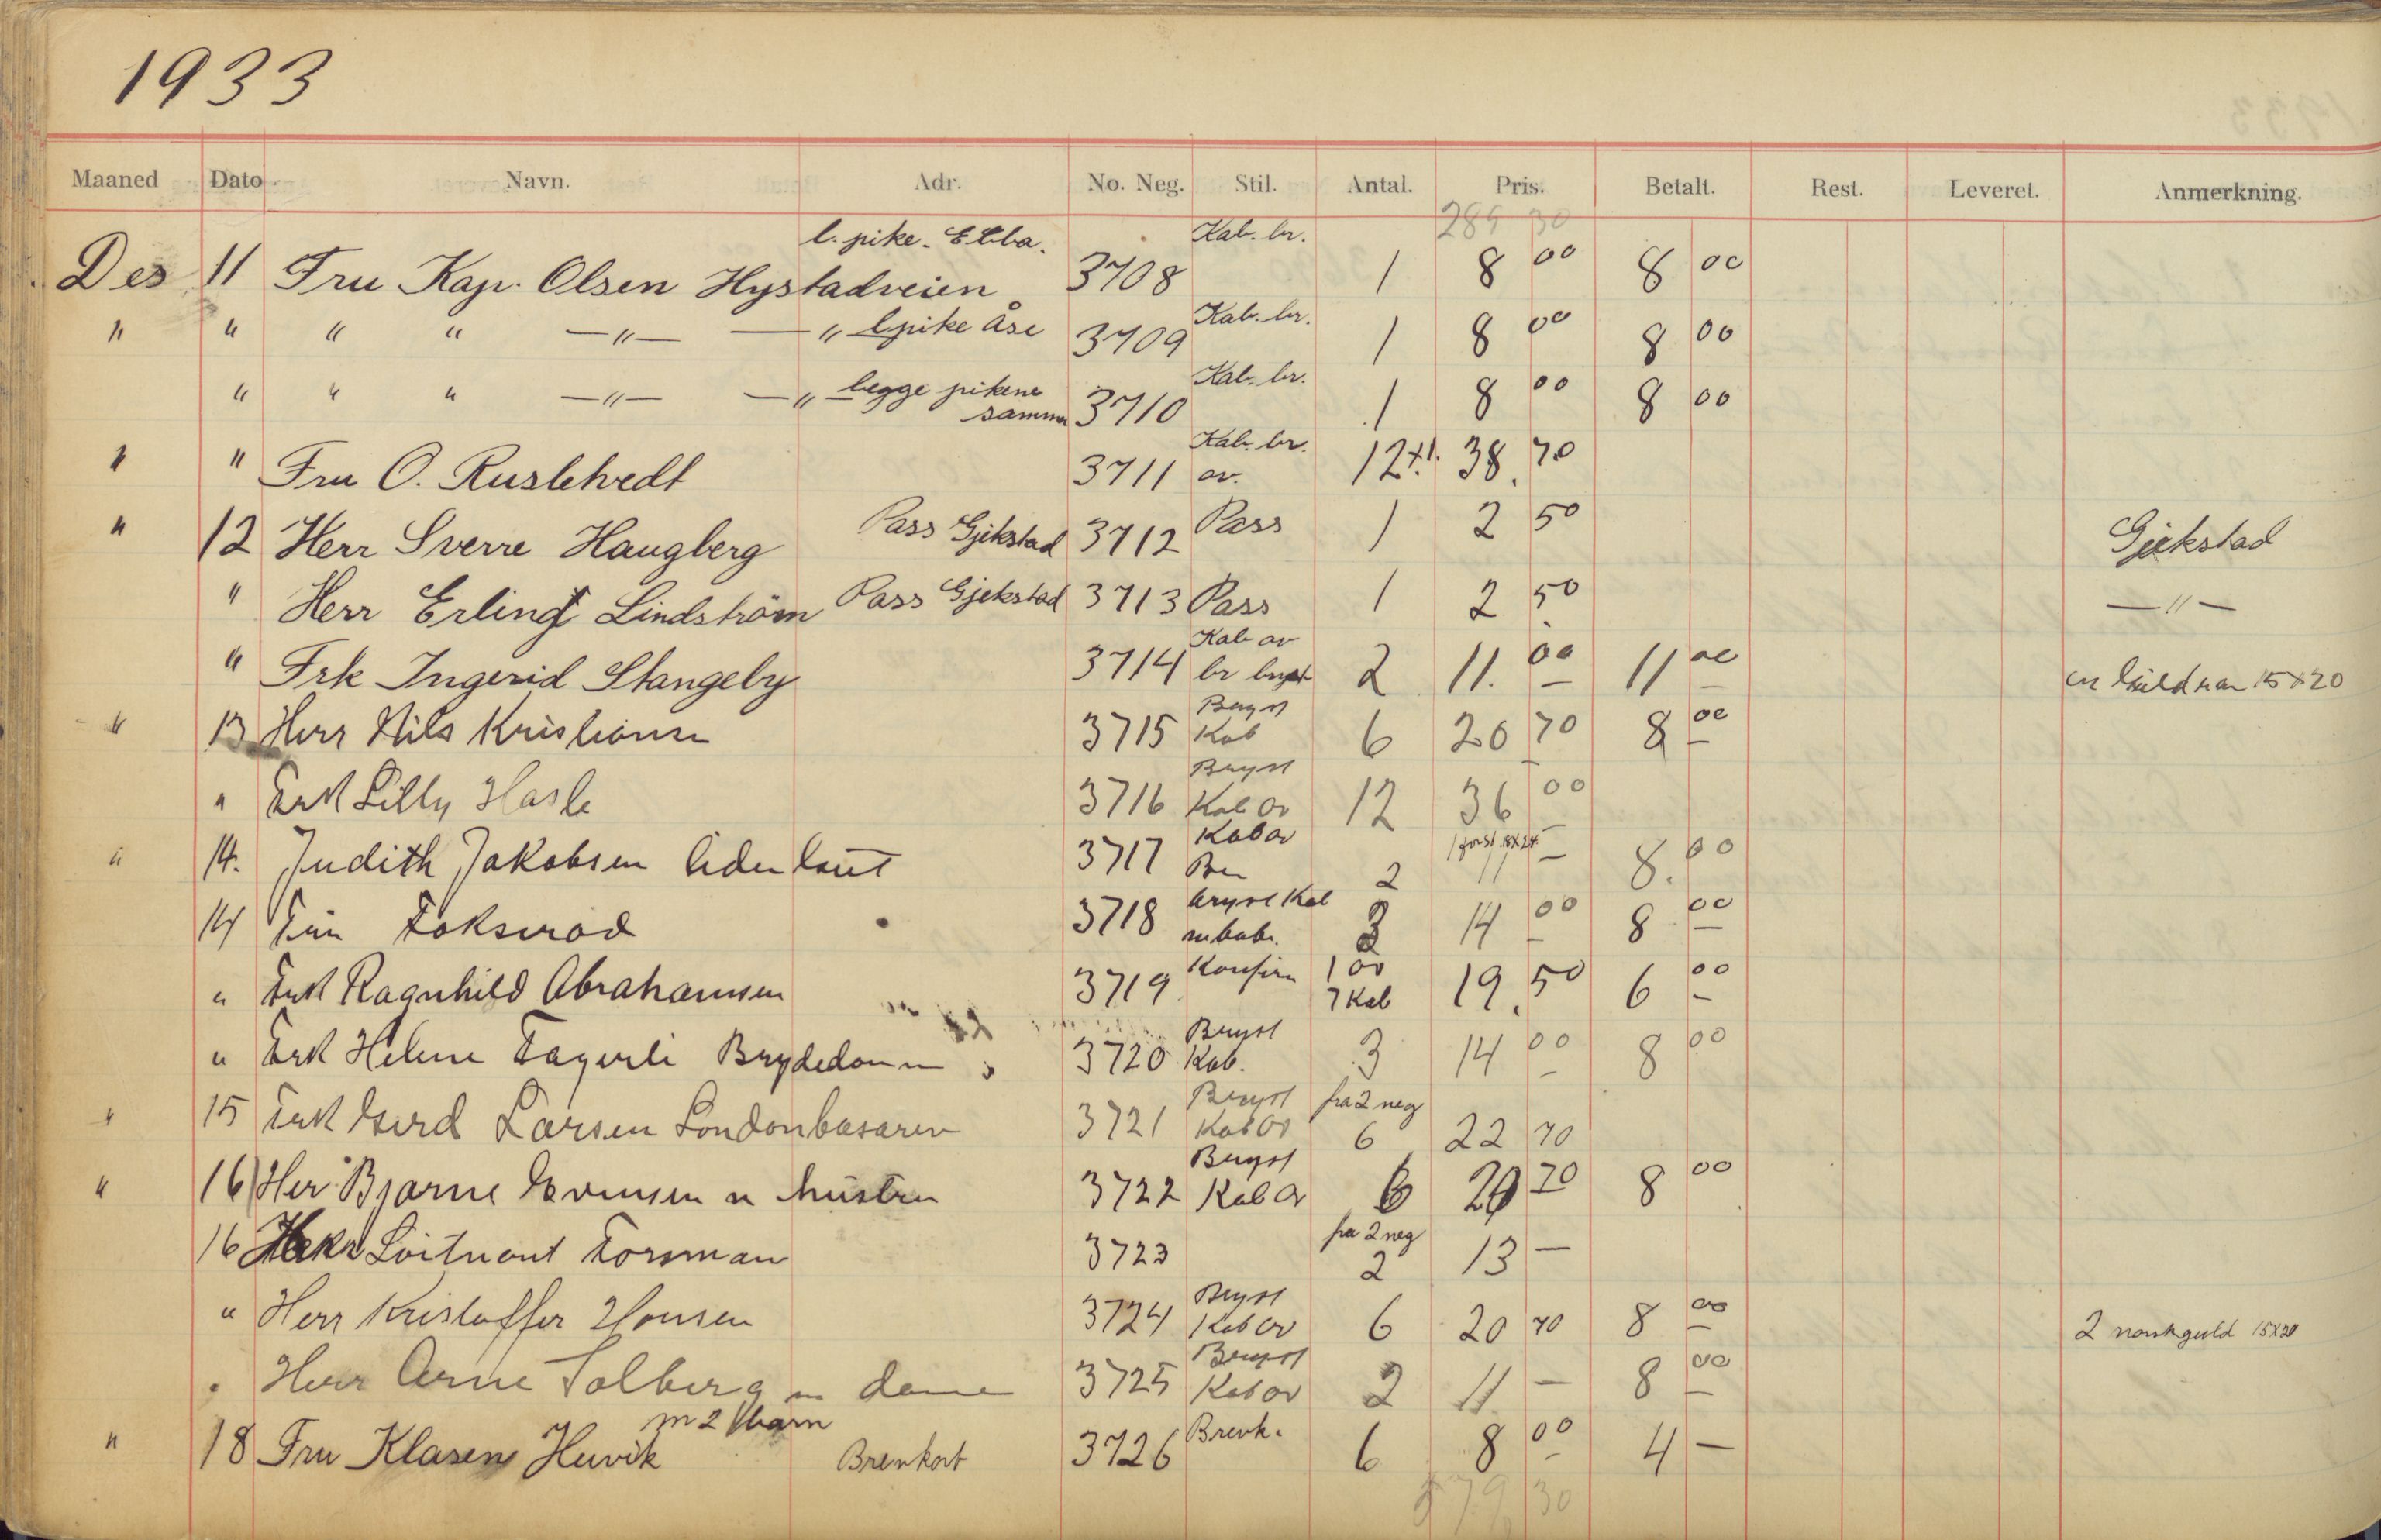 1933
Maaned Dato Navn. Adr. No. Neg. Stil. Antal. Pris. Betalt. Rest. Leveret. Anmerkning.
289 30
l. pike. Ebba. Kab. br.
Des 11 Fru Kap. Olsen Hystadveien 3708 1 8 00 8 00
" " " " —"— —"— l. pike Åse 3709 Kab. br. 1 8 00 8 00
" " " —"— —"— begge pikene 3710 Kab. br. 1 8 00 8 00
samme
" " Fru O. Rustehvedt 3711 Kab. br. ov. 12+1. 38.70
" 12 Herr Sverre Haugberg Pass Gjekstad 3712 Pass 1 2 50 Gjekstad
" Herr Erling Lindström Pass Gjekstad 3713 Pass 1 2 50 —"—
" Frk Ingerid Stangeby 3714 Kab ov br bryst 2 11.00 11 00 15×20
" 13 Herr Nils Kristiansen 3715 Bryst Kab 6 20 70 8 00
" Frk Lilly Hasle 3716 Bryst Kab Ov 12 36 00
" 14. Judith Jakobsen 3717 Kab ov 2 1 forst. 18×24 11 — 8.00
14 Fru Fokserød 3718 bryst Kab m bab. 3 14 00 8 00
" Frk Ragnhild Abrahamsen 3719 Konfirm 1 ov 7 Kab 19.50 6 00
" Frk Helene Fagerli Brydedamm 3720 Bryst Kab. 3 14 00 8 00
" 15 Frk Gerd Larsen Londonbasaren 3721 Bryst Kab Ov fra 2 neg 6 22 70
" 16 Her Bjarne Evensen m hustru 3722 Bryst Kab Ov 6 20 70 8 00
16 Herr Løitnant Forsman 3723 fra 2 neg 2 13 —
" Herr Kristoffer Hansen 3724 Bryst Kab Ov 6 20 70 8 00 2 norskguld 15×20
" Herr Arne Solberg m dame 3725 Bryst Kab ov 2 11 — 8 00
m 2 barn
" 18 Fru Klasen Huvik Brevkort 3726 Brevk. 6 8 00 4 —
579 30